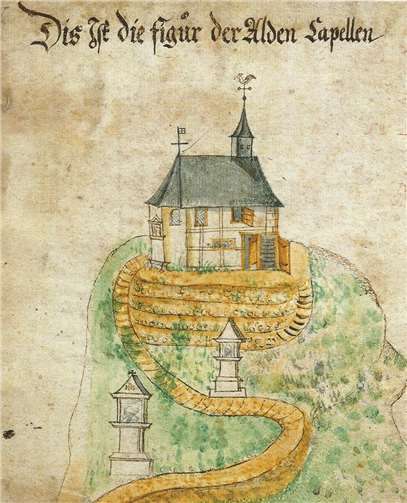 Dis Ist die figůr der Alden Capellen